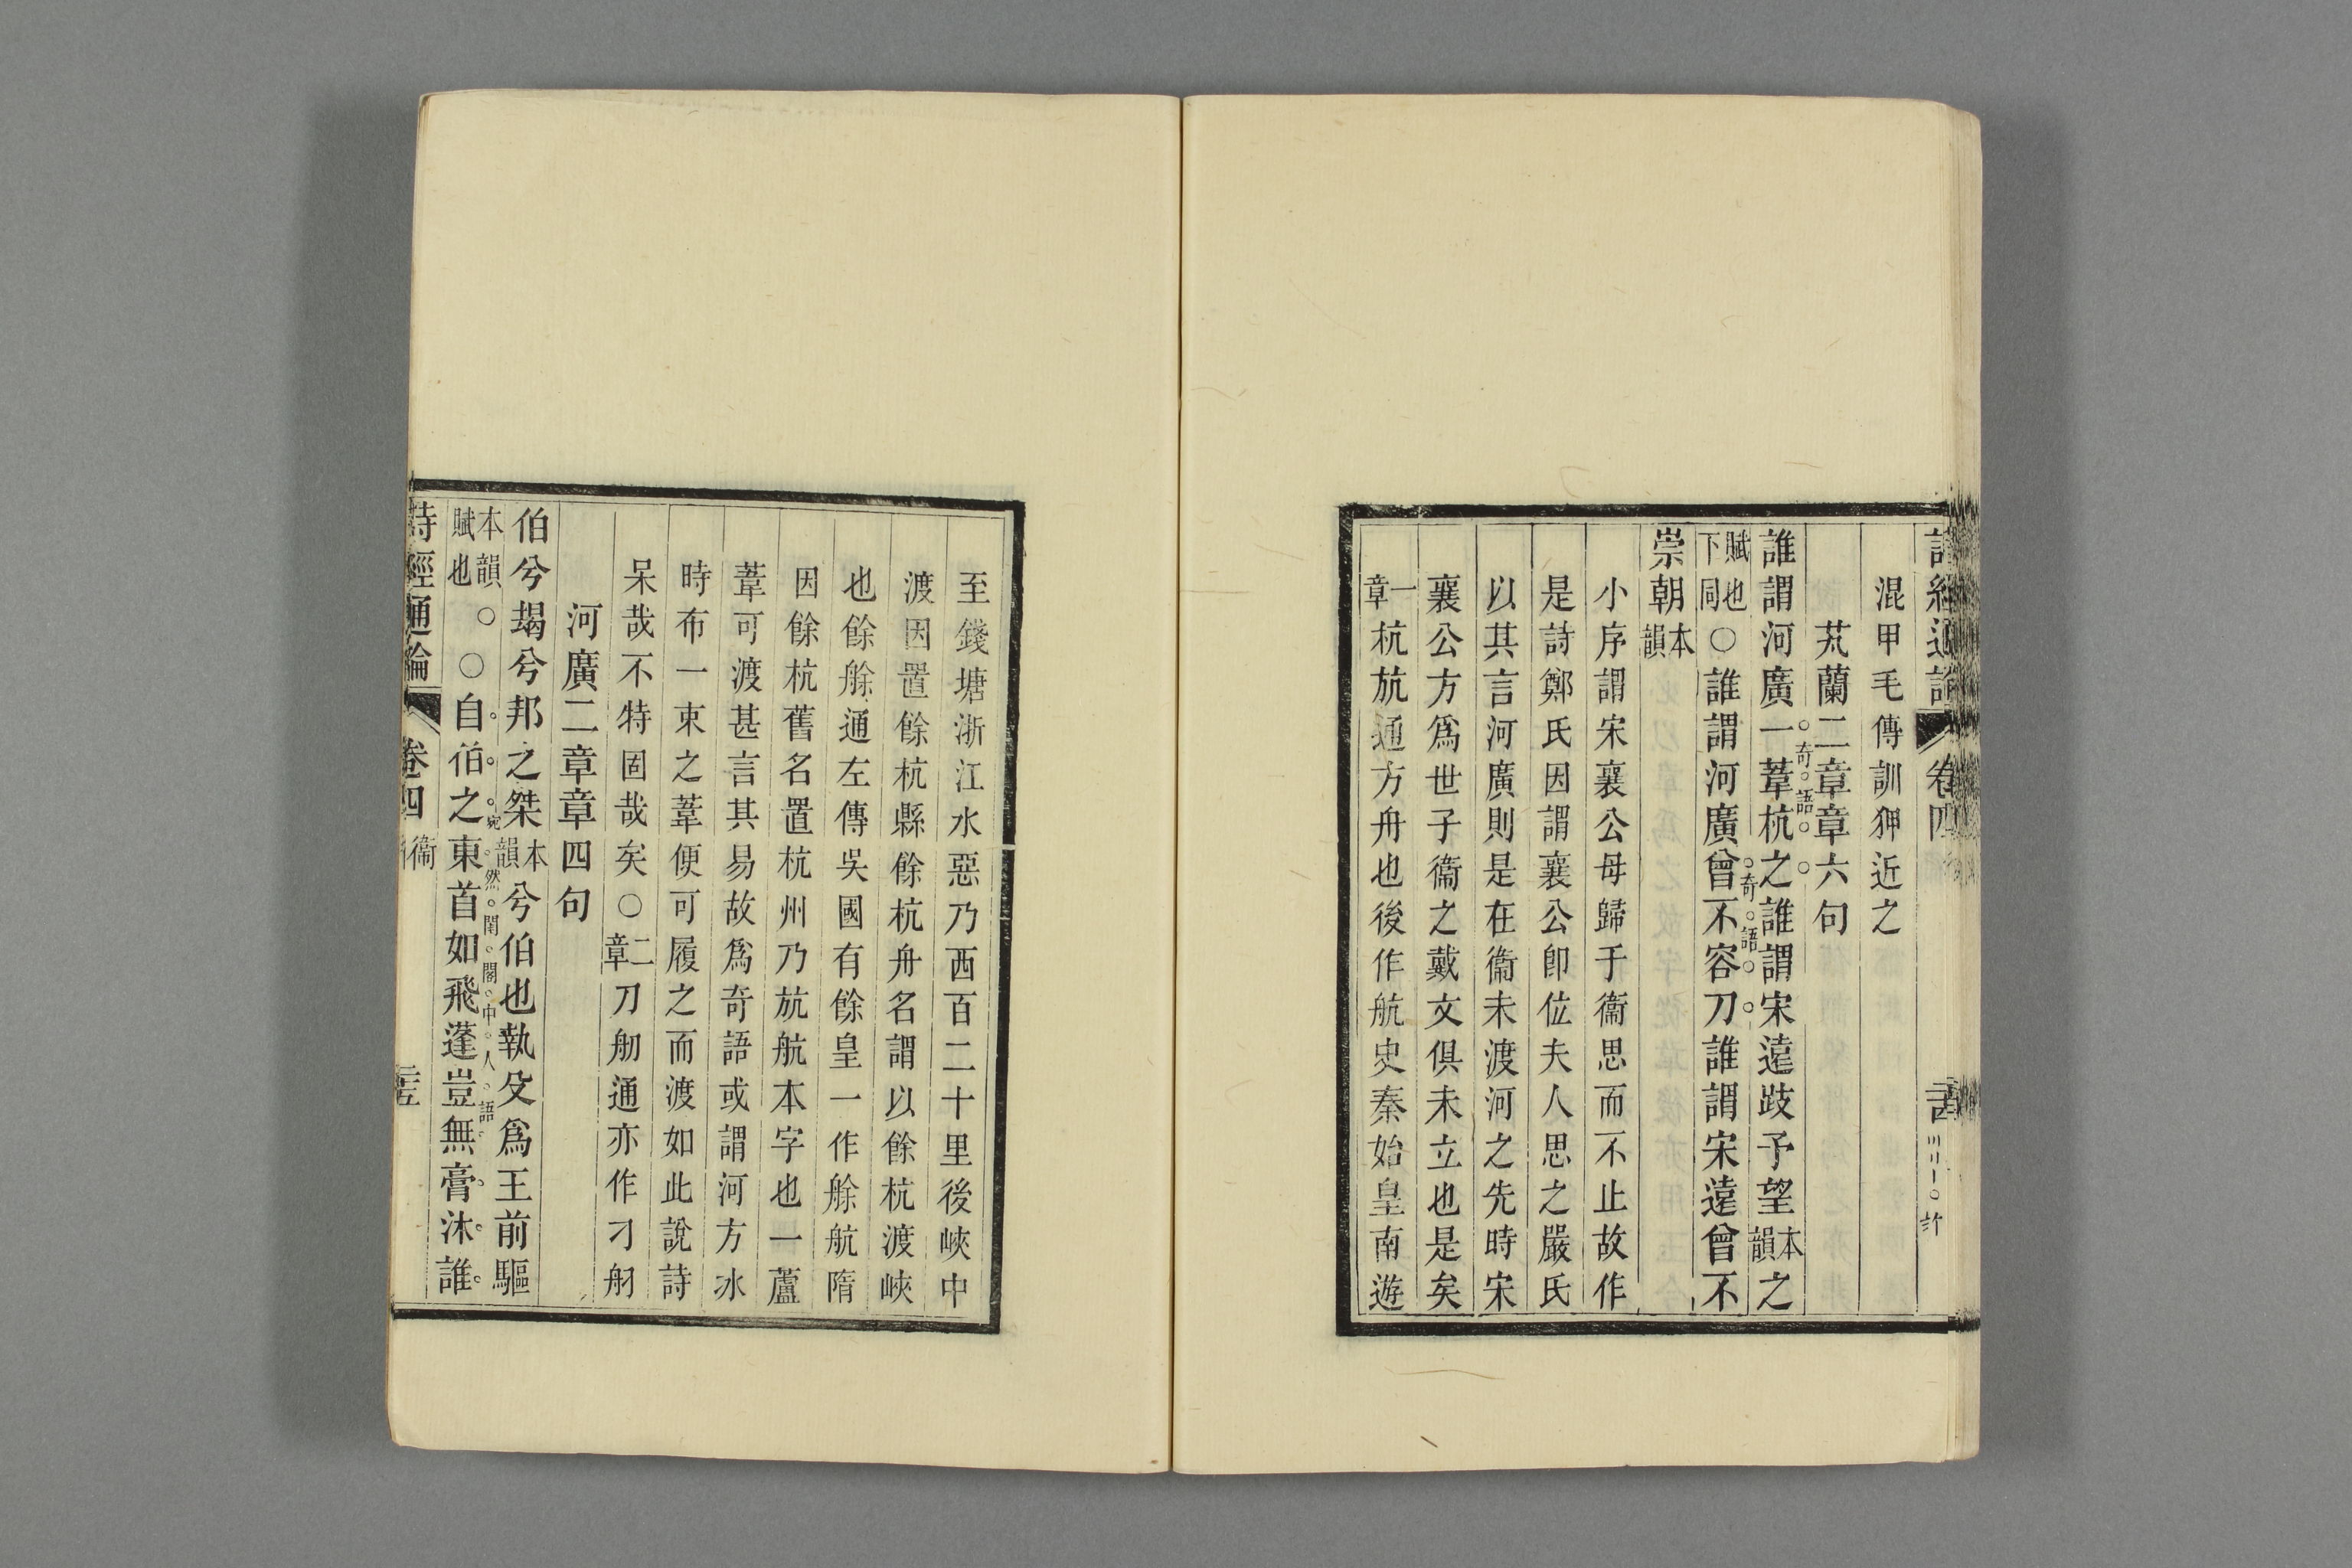 詩經通論 卷四
混甲毛傳訓狎近之
芄蘭二章章六句
誰謂河廣一葦杭之誰謂宋遠跂予望本韻之
奇語
賦也下同○誰謂河廣曾不容刀誰謂宋遠曾不
奇語
崇朝本韻
小序謂宋襄公母歸于衞思而不止故作
是詩鄭氏因謂襄公卽位夫人思之嚴氏
以其言河廣則是在衞未渡河之先時宋
襄公方爲世子衞之戴文俱未立也是矣
一章杭斻通方舟也後作航史秦始皇南遊
至錢塘浙江水惡乃西百二十里後峽中
渡因置餘杭縣餘杭舟名謂以餘杭渡峽
也餘艅通左傳吳國有餘皇一作艅航隋
因餘杭舊名置杭州乃斻航本字也一蘆
葦可渡甚言其易故爲奇語或謂河方冰
時布一束之葦便可履之而渡如此說詩
呆哉不特固哉矣○二章刀舠通亦作刁舠
河廣二章章四句
伯兮朅兮邦之桀本韻兮伯也執殳爲王前驅
本韻○賦也○自伯之東首如飛蓬豈無膏沐誰
宛然閨閣中人語
詩經通論 卷四 衞